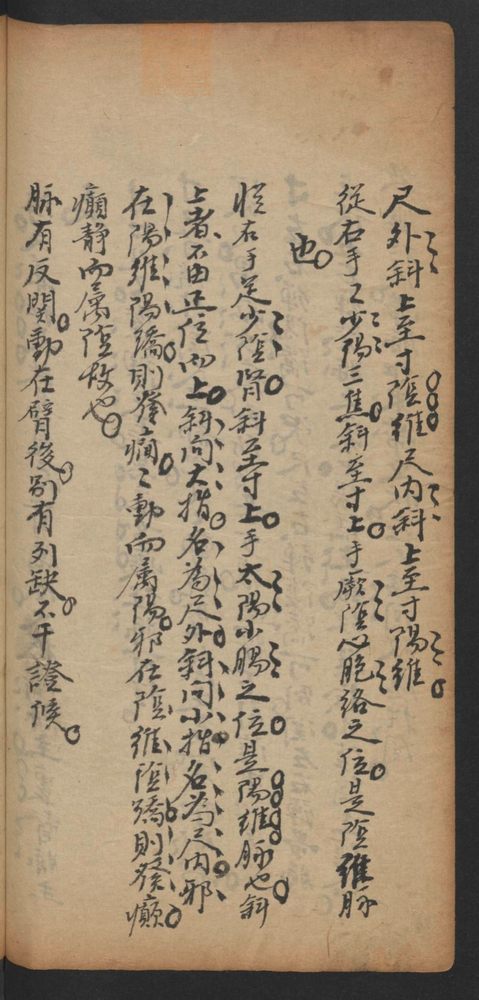 尺外斜上至寸陰維尺内斜上至寸陽維
從右手手少陽三焦斜至寸上手厥陰心胞絡之位是陰維脉
也
從右手足少陰腎斜至寸上手太陽小腸之位是陽維脉也斜
上者不由正位而上斜向大指名為尺外斜向小指名為尺内邪
在陽維陽蹻則發癇癇動而属陽邪在陰維陰蹻則發癲
癲静而属陰故也
脉有反関動在臂後別有列缺不干證候